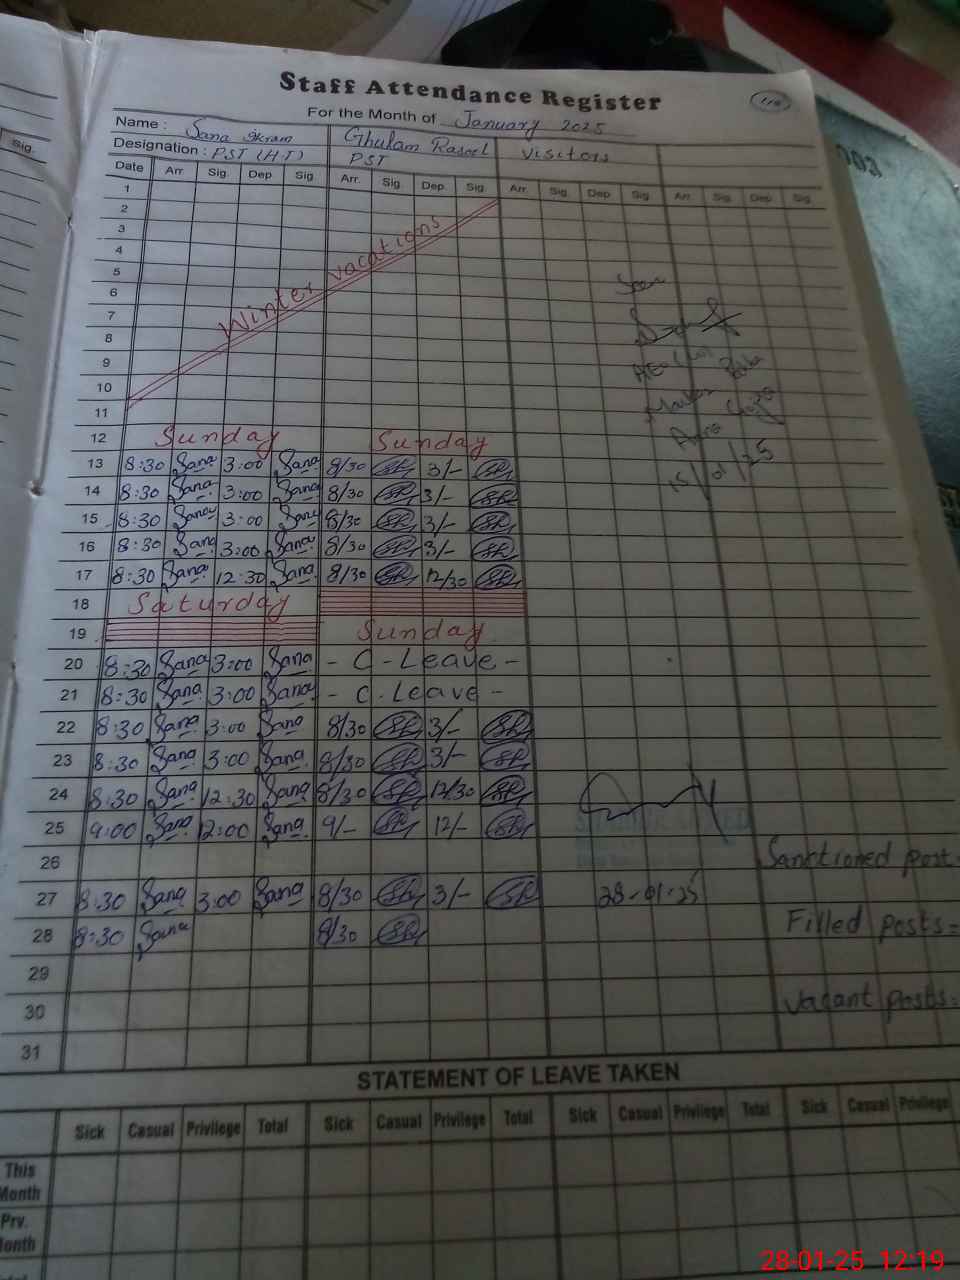 Sig.
Staff Attendance Register
For the Month of January 2025
Name : Sana Ikram Ghulam Rasool Visitors
Designation : PST (H.T) PST
Date Arr. Sig. Dep. Sig. Arr. Sig. Dep. Sig. Arr. Sig. Dep. Sig. Arr. Sig. Dep. Sig.
1
2
3
4
5
Winter vacations
6
7
8
9
10
11
12 Sunday Sunday
13 8:30 Sana 3:00 Sana 8/30 3/-
14 8:30 Sana 3:00 Sana 8/30 3/-
15 8:30 Sana 3:00 Sana 8/30 3/-
16 8:30 Sana 3:00 Sana 8/30 3/-
17 8:30 Sana 12:30 Sana 8/30 12/30
18 Saturday
19 Sunday
20 8:30 Sana 3:00 Sana - C - Leave -
21 8:30 Sana 3:00 Sana - C - Leave -
22 8:30 Sana 3:00 Sana 8/30 3/-
23 8:30 Sana 3:00 Sana 8/30 3/-
24 8:30 Sana 12:30 Sana 8/30 12/30
25 9:00 Sana 12:00 Sana 9/- 12/-
26
27 8:30 Sana 3:00 Sana 8/30 3/-
28 8:30 Sana 8/30
29
30
31
Seen
15/01/25
28-01-25
Sanctioned post
Filled posts=
Vacant posts=
STATEMENT OF LEAVE TAKEN
Sick Casual Privilege Total Sick Casual Privilege Total Sick Casual Privilege Total Sick Casual Privilege
This
Month
Prv.
Month
28-01-25 12:19